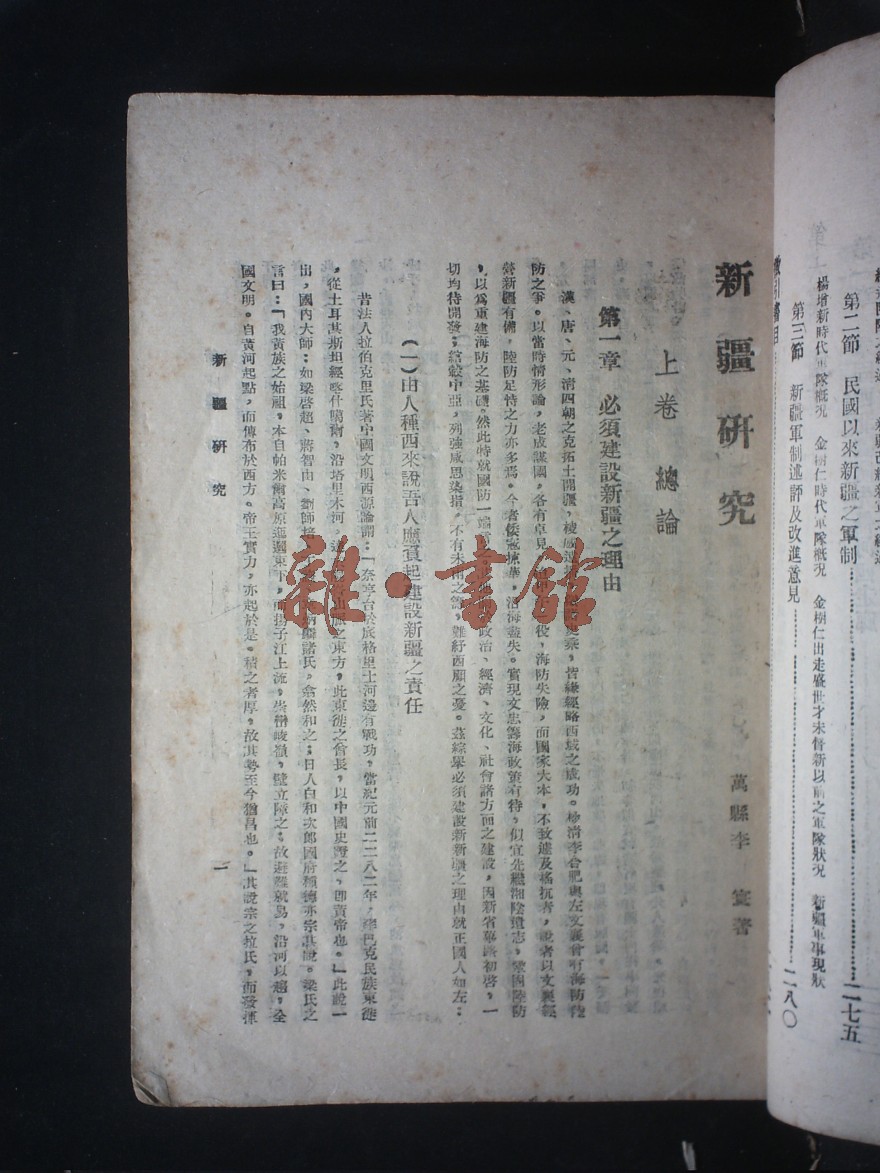 經
第二節 民國以來新疆之軍制……二七五
楊增新時代軍隊概況 金樹仁時代軍隊概況 金樹仁出走盛世才未督新以前之軍隊狀況 新疆軍事現狀
第三節 新疆軍制述評及改進意見……二八〇
徵引書目
新疆研究
萬縣李寰著
上卷 總論
第一章 必須建設新疆之理由
漢、唐、元、清四朝之克拓土開疆,皆緣經略西域之成功。遜清李合肥與左文襄曾有海防陸
防之爭。以當時情形論,老成謀國,各有卓見役,海防失險,而國家大本,不致遽及搖抗者,說者以文襄經
營新疆有備,陸防足恃之力亦多焉。今者倭寇掠華,沿海盡失。實現文忠籌海政策有待,似宜先繼湘陰遺志,鞏固陸防
,以爲重建海防之基礎。然此時就國防一端政治、經濟、文化、社會諸方面之建設,因新省蓽路初啓,一
切均待開發;綰轂中亞,列強咸思染指,不有未雨之籌,難紓西顧之憂。茲綜舉必須建設新新疆之理由就正國人如左:
(一)由人種西來說吾人應負起建設新疆之責任
昔法人拉伯克里氏著中國文明西源論謂:「奈亨台於底格里士河邊有戰功,當紀元前二二八二年,率巴克民族東徙
,從土耳其斯坦經喀什噶爾,沿塔里木河,之東方,此東徙之酋長,以中國史證之,即黃帝也。」此說一
出,國內大師:如梁啓超、蔣智由、劉師培諸氏,翕然和之;日人白和次郎國府種德亦宗其說。梁氏之
言曰:「我黃族之始祖,本自帕米爾高原迤邐東下,而揚子江上流,崇巒峻嶺,壁立障之。故避難就易,沿河以趨,全
國文明。自黃河起點,而傳布於西方。帝王實力,亦起於是。積之者厚,故其勢至今猶昌也。」其說宗之拉氏,而發揮
新疆研究 一
雜·書館